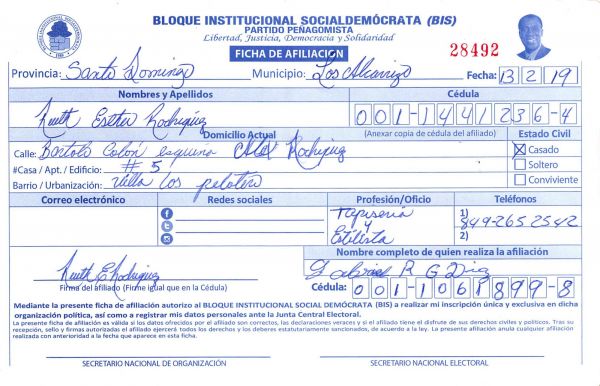 BLOQUE INSTITUCIONAL SOCIALDEMÓCRATA (BIS)
PARTIDO PEÑAGOMISTA
Libertad, Justicia, Democracia y Solidaridad
FICHA DE AFILIACIÓN
28492
Provincia: Santo Domingo Municipio: Los Alcarrizo Fecha: 13 2 19
Nombres y Apellidos Cédula
Ruth Esther Rodriguez 001-1441236-4
Domicilio Actual (Anexar copia de cédula del afiliado) Estado Civil
Calle: Bartolo Colón esquina Rodriguez Casado
#Casa / Apt. / Edificio: # 5 Soltero
Barrio / Urbanización: Villa los peloteros Conviviente
Correo electrónico Redes sociales Profesión/Oficio Teléfonos
Tapiseria y Estilista
1) 849-265 2542
2)
Nombre completo de quien realiza la afiliación
Ruth E Rodriguez Gabriel R G
Firma del afiliado (Firme igual que en la Cédula) Cédula: 001-1061899-8
Mediante la presente ficha de afiliación autorizo al BLOQUE INSTITUCIONAL SOCIAL DEMÓCRATA (BIS) a realizar mi inscripción única y exclusiva en dicha
organización política, así como a registrar mis datos personales ante la Junta Central Electoral.
La presente ficha de afiliación es válida si los datos ofrecidos por el afiliado son correctos, las declaraciones veraces y si el afiliado tiene el disfrute de sus derechos civiles y políticos. Tras su
recepción, sello y firmas autorizadas el afiliado ejercerá todos los derechos y los deberes estatutariamente sancionados, de acuerdo a la ley. La presente afiliación anula cualquier afiliación
realizada con anterioridad a la fecha que aparece en esta ficha.
SECRETARIO NACIONAL DE ORGANIZACIÓN SECRETARIO NACIONAL ELECTORAL